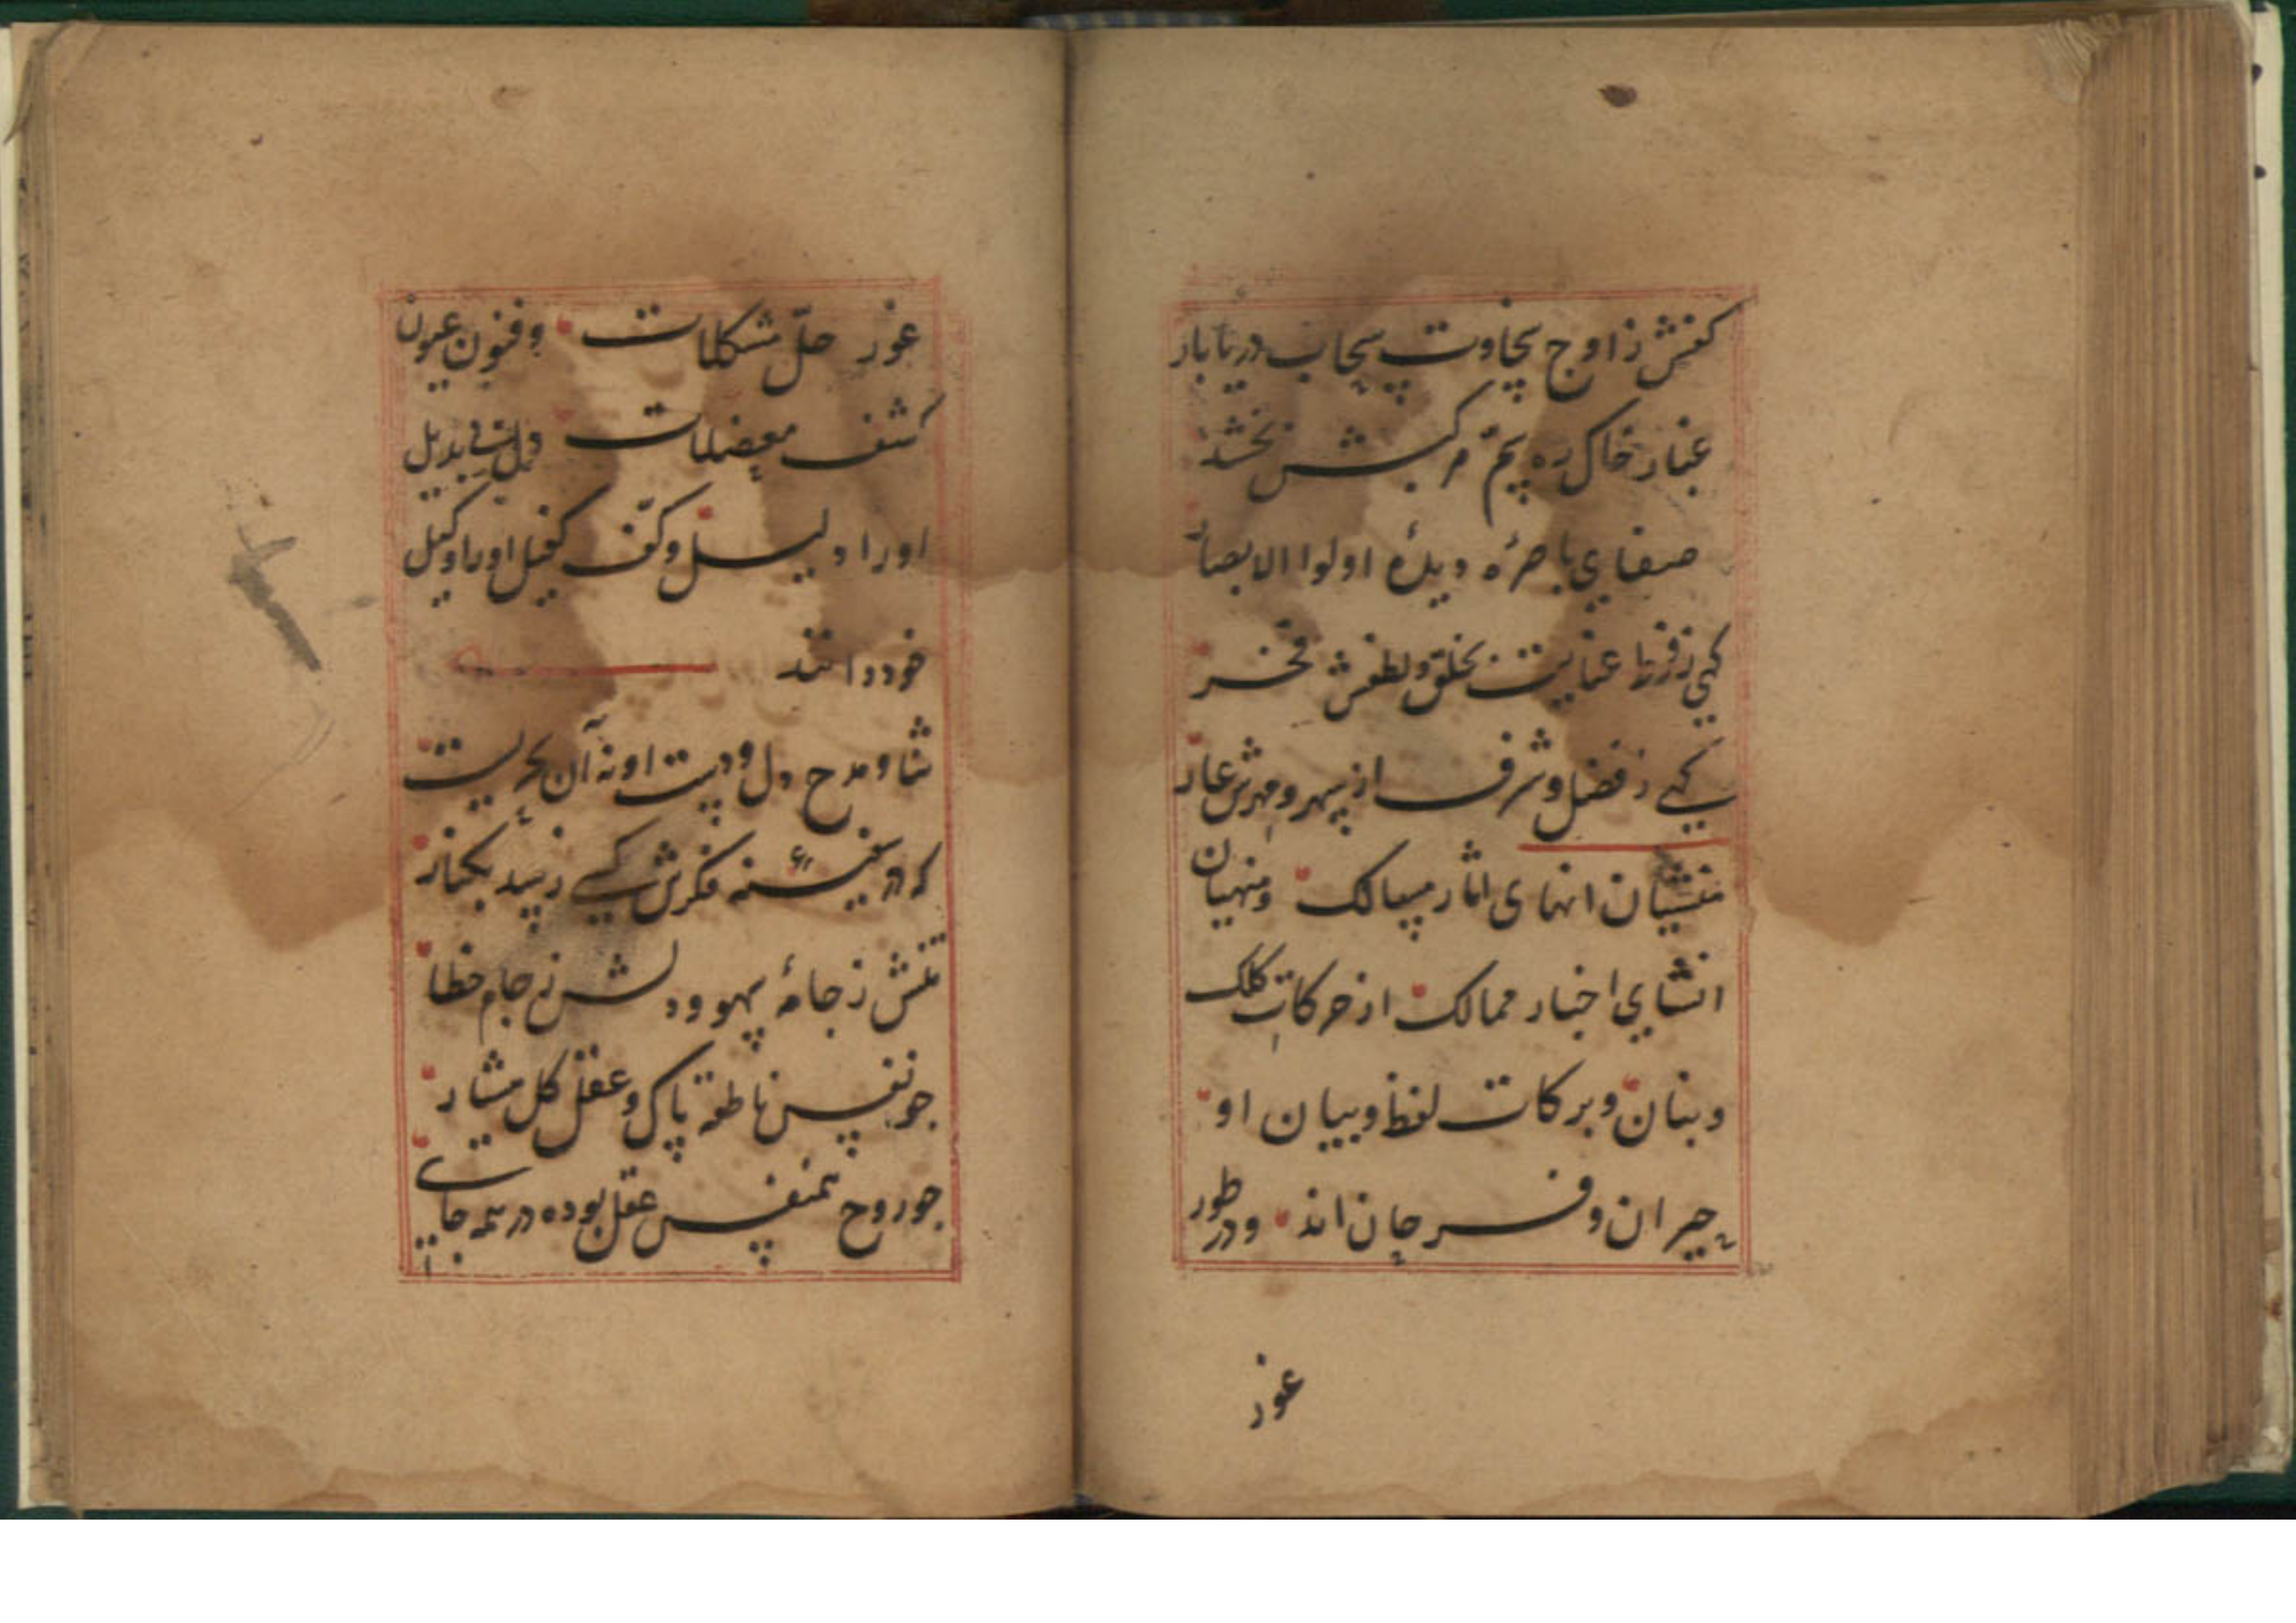 کفش ز اوج سخاوت سحاب دریا بار
غبار خاک ره سم مرکبش بخشد
صفای باصرهٔ دیدهٔ اولوا الابصار
کهی ز فرط عنایت بخلق و لطفش فخر
کهی ز فضل و شرف از سپهر و مهرش عار
منشیان انهای اثار مسالک ومنهیان
انشای اخبار ممالک از حرکات کلک
و بنان و برکات لفظ و بیان او
حیران و فرحان اند ودر طور
غور
غور حلّ مشکلات وفنون عیون
کشف معضلات دل بی بدیل
اورا دلیل وکفّ کفیل اورا وکیل
خود دانند
ثنا و مدح دل و دست او نه آن بحریست
که در سفینهٔ فکرش کسی رسد بکنار
تنش ز جامهٔ سهو و دلش ز جام خطا
جو نفس ناطقه پاک و عقل کل هشیار
جو روح همنفس عقل بوده در همه جای